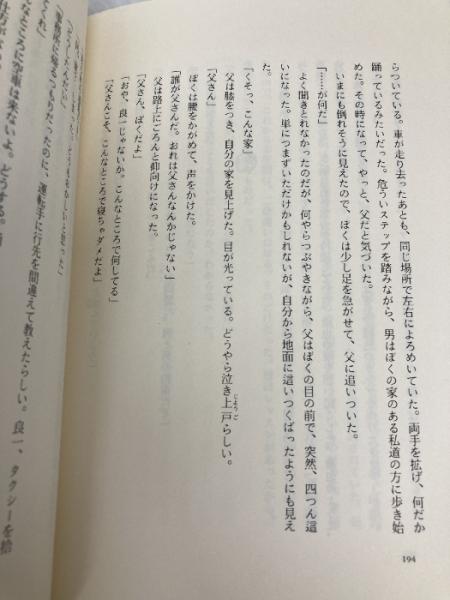 らついている。車が走り去ったあとも、同じ場所で左右によろめいていた。両手を拡げ、何だか
踊っているみたいだった。危ういステップを踏みながら、男はぼくの家のある私道の方に歩き始
めた。その時になって、やっと、父だと気づいた。
いまにも倒れそうに見えたので、ぼくは少し足を急がせて、父に追いついた。
「……が何だ」
よく聞きとれなかったのだが、何やらつぶやきながら、父はぼくの目の前で、突然、四つん這
いになった。単につまずいただけかもしれないが、自分から地面に這いつくばったようにも見え
た。
「くそっ、こんな家」
父は膝をつき、自分の家を見上げた。目が光っている。どうやら泣き上戸らしい。
じょうご
「父さん」
ぼくは腰をかがめて、声をかけた。
「誰が父さんだ。おれは父さんなんかじゃない」
父は路上にごろんと仰向けになった。
「父さん、ぼくだよ」
「おや、良一じゃないか。こんなところで何してる」
「父さんこそ、こんなところで寝ちゃダメだよ」
に帰るつもりだったのに、運転手に行先を間違えて教えたらしい。良一、タクシーを拾
んなところに空車は来ないよ。どうする。
194